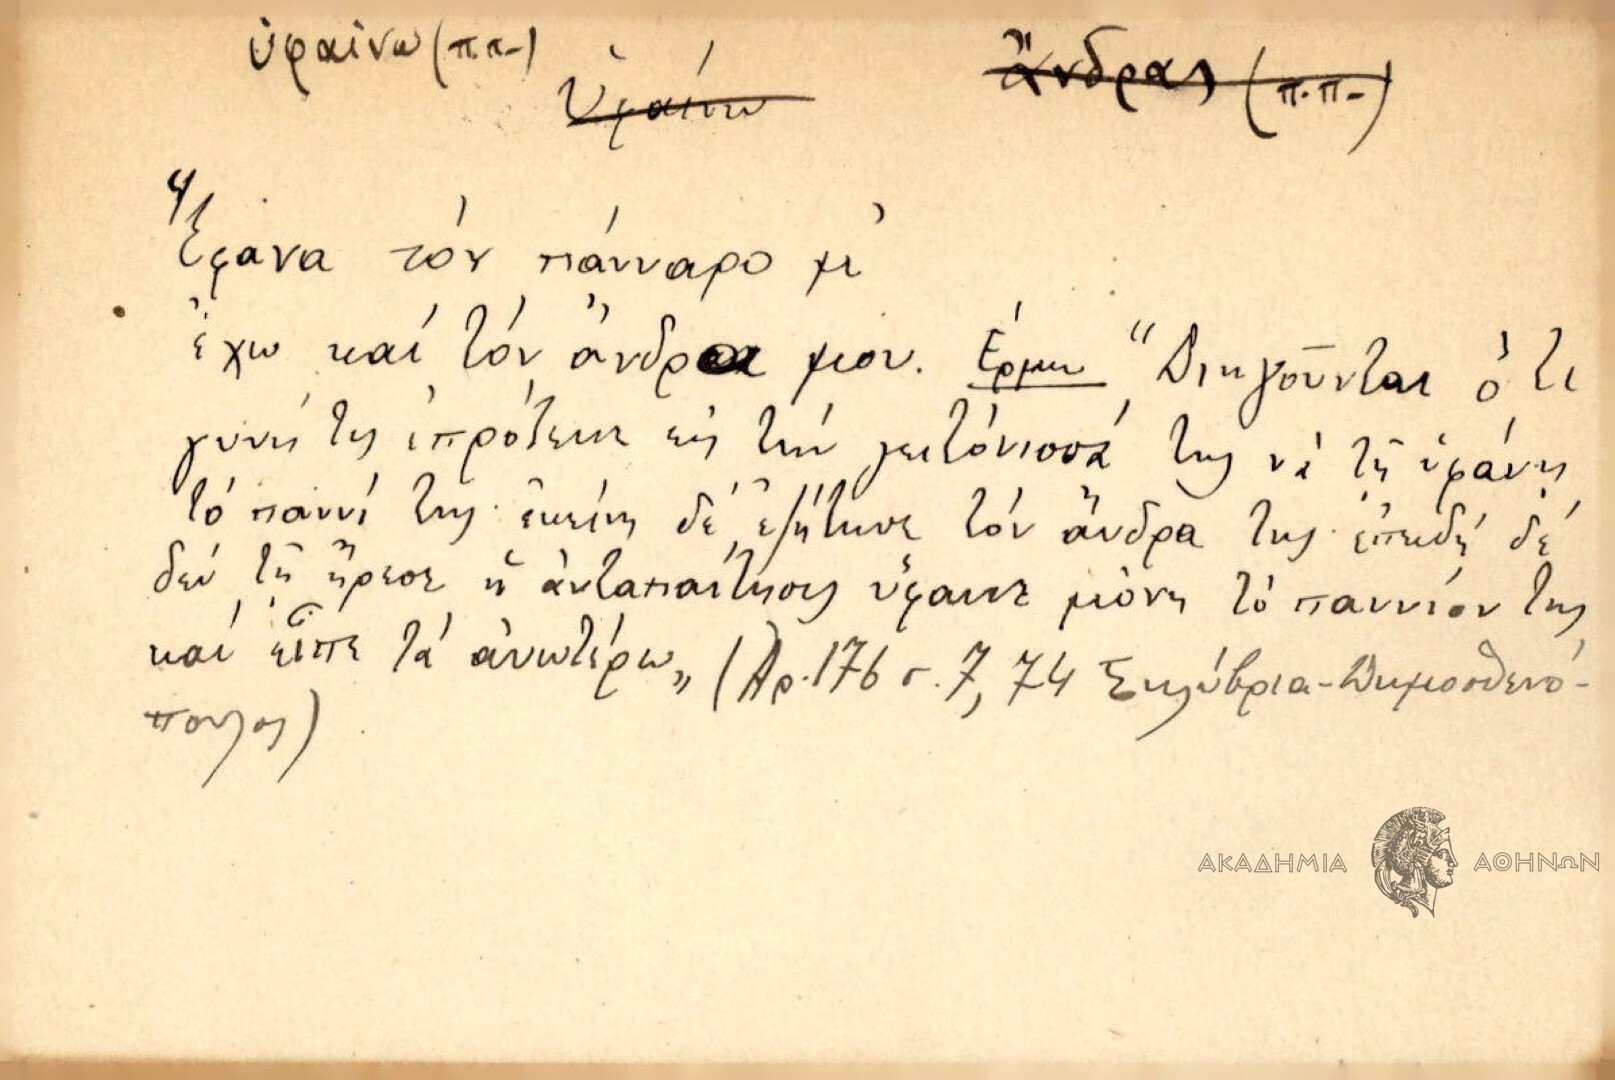 ὑφαίνω (π.π.-) ἄνδρας (π.π.-)
Ὑφαίνω
4
Ἔφανα τόν πάνναρο μ'
ἔχω καί τόν ἄνδρα μου. Ἑρμ. "Διηγοῦνται ὅτι
γυνή τις ἐπρότεινε εἰς τήν γειτόνισσά της νά τῇ ὑφάνῃ
τό παννί της· ἐκείνη δέ ἐζήτησε τόν ἄνδρα της· ἐπειδή δέ
δέν τῇ ἤρεσε ἡ ἀνταπαίτησις ὕφαινε μόνη τό παννίον της
καί εἶπε τά ἀνωτέρω„ (Ἀρ. 176 σ. 7, 74 Σηλύβρια - Δημοσθενό-
πουλος)
ΑΚΑΔΗΜΙΑ ΑΘΗΝΩΝ